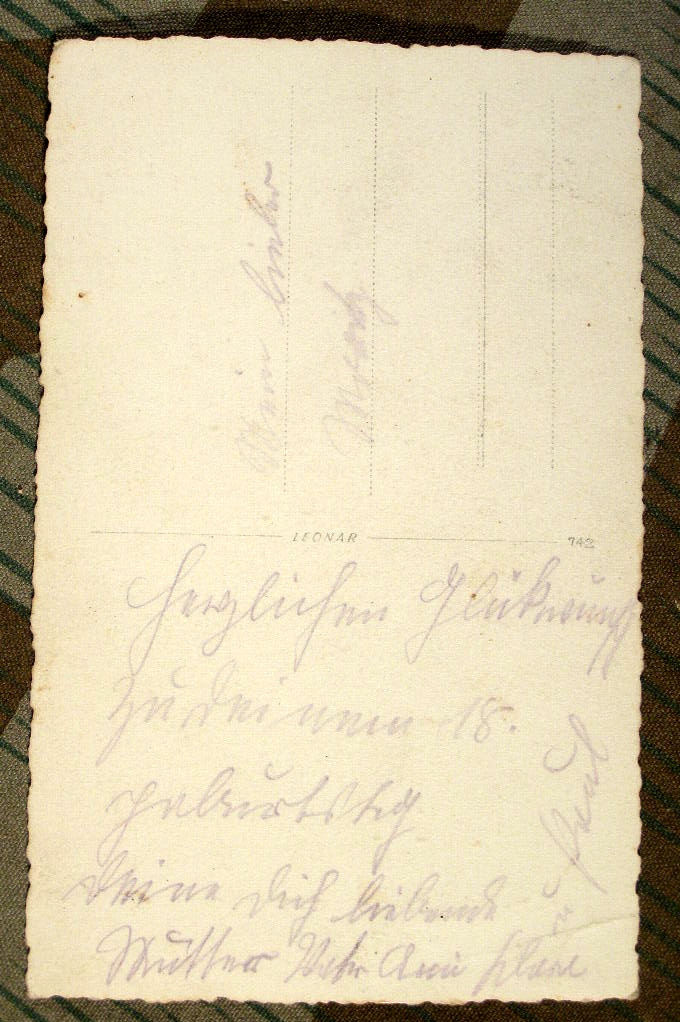 Mein lieber
Moritz
LEONAR
742
Herzlichen Glükwunsch
zu deinem 18.
geburtstag
deine dich liebende
Mutter Vater Ani Klara
u Paul